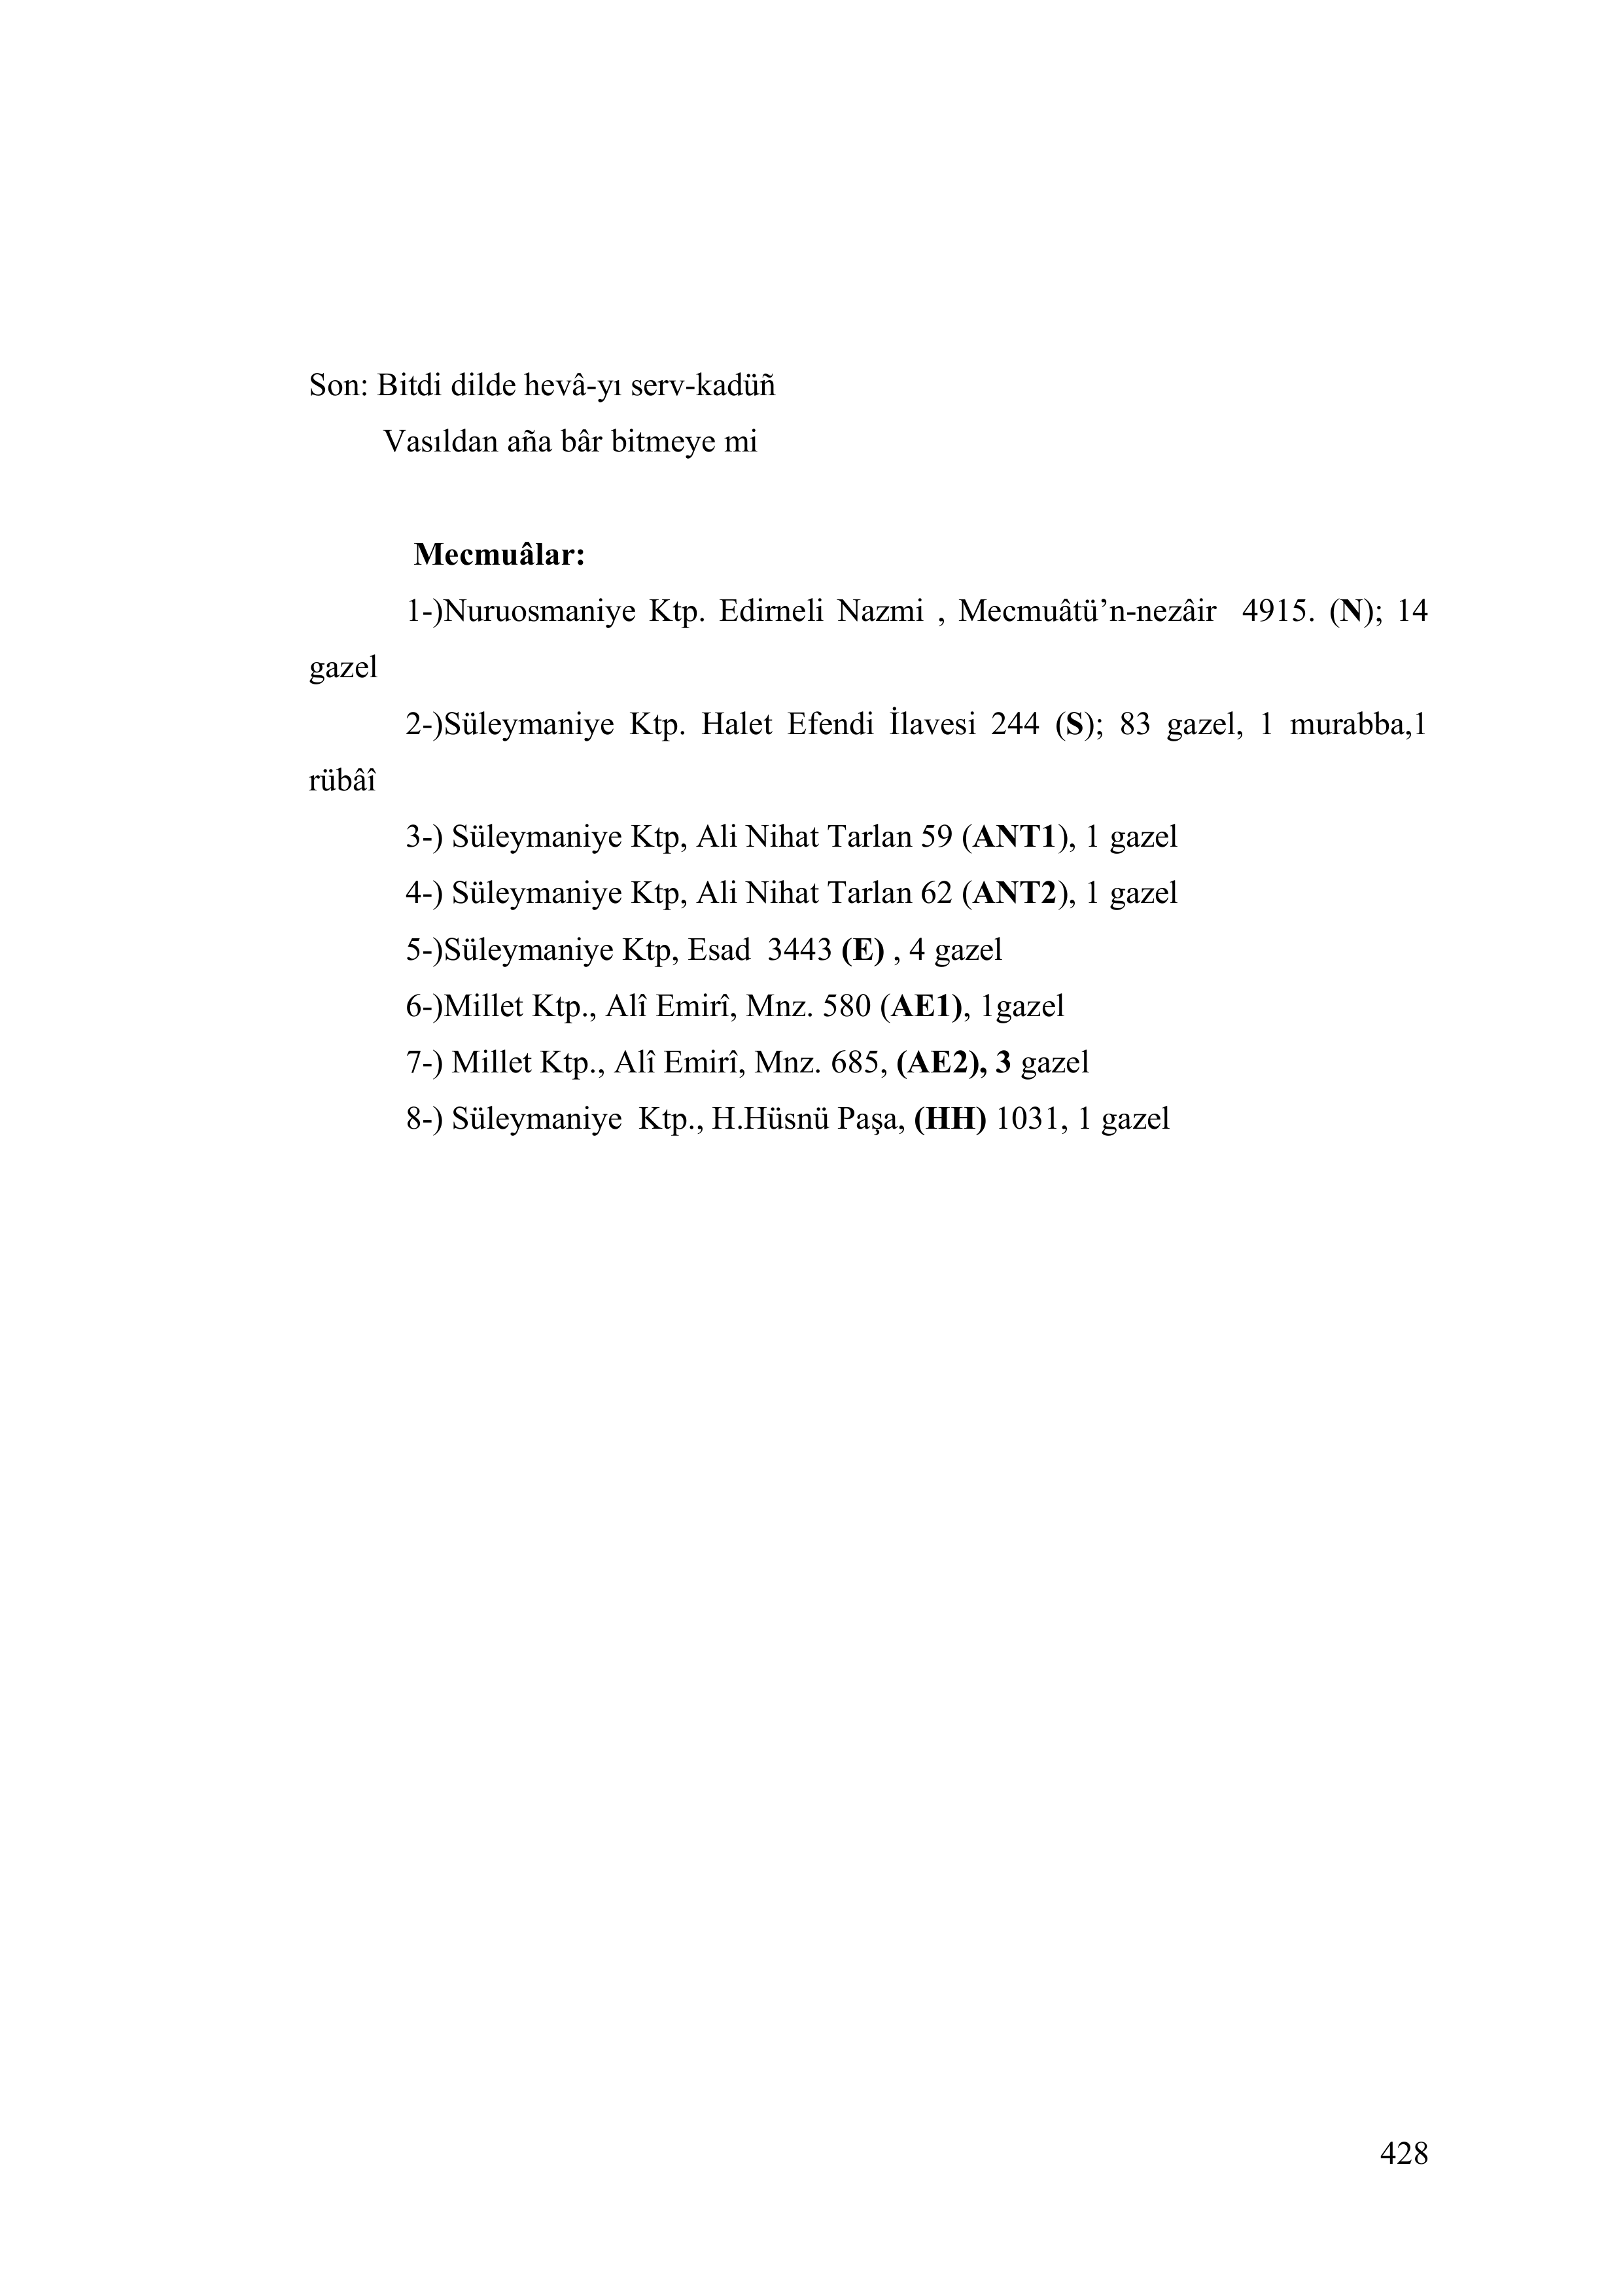 Son: Bitdi dilde hevâ-yı serv-kadüñ
Vasıldan aña bâr bitmeye mi
Mecmuâlar:
1-)Nuruosmaniye Ktp. Edirneli Nazmi , Mecmuâtü’n-nezâir 4915. (N); 14
gazel
2-)Süleymaniye Ktp. Halet Efendi İlavesi 244 (S); 83 gazel, 1 murabba,1
rübâî
3-) Süleymaniye Ktp, Ali Nihat Tarlan 59 (ANT1), 1 gazel
4-) Süleymaniye Ktp, Ali Nihat Tarlan 62 (ANT2), 1 gazel
5-)Süleymaniye Ktp, Esad 3443 (E) , 4 gazel
6-)Millet Ktp., Alî Emirî, Mnz. 580 (AE1), 1gazel
7-) Millet Ktp., Alî Emirî, Mnz. 685, (AE2), 3 gazel
8-) Süleymaniye Ktp., H.Hüsnü Paşa, (HH) 1031, 1 gazel
428